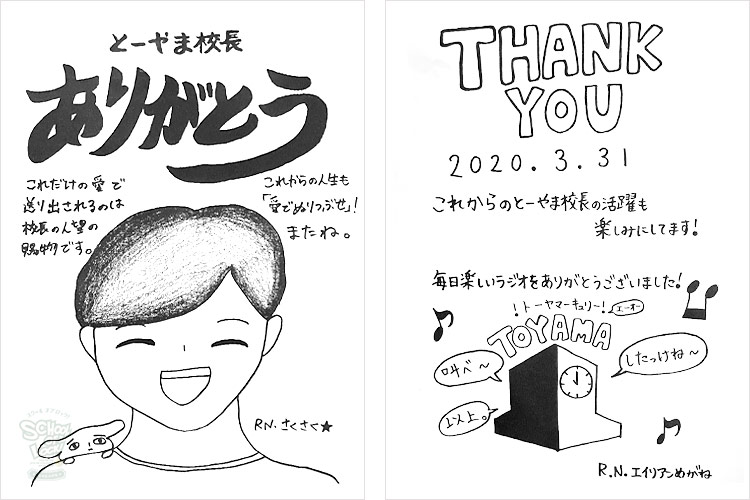 とーやま校長
ありがとう
これだけの愛で
送り出されるのは
校長の人望の
賜物です。
これからの人生も
「愛でぬりつぶせ」!
またね。
R.N. さくさく★
THANK
YOU
2020.3.31
これからのとーやま校長の活躍も
楽しみにしてます!
毎日楽しいラジオをありがとうございました!
!トーヤマーキュリー!
エーオー
TOYAMA
叫べ～
したっけね～
以上。
R.N. エイリアンめがね
SCHOOL